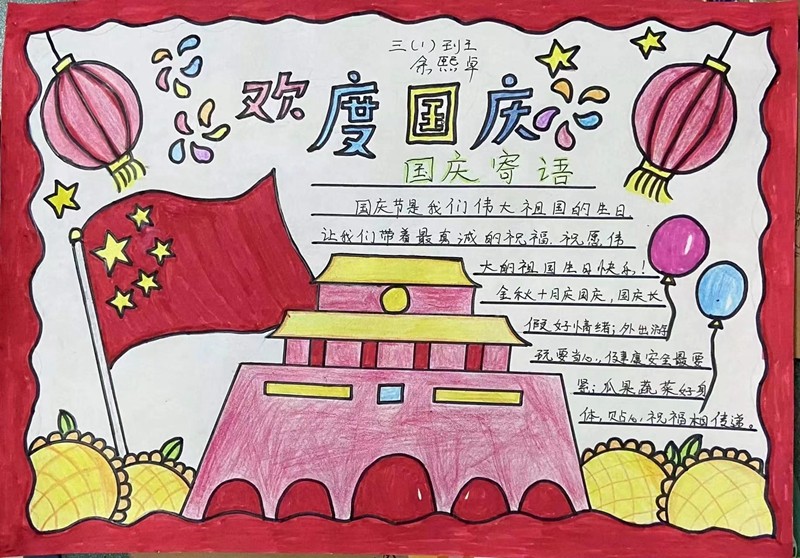 三(1)班
余熙卓
欢度国庆
国庆寄语
国庆节是我们伟大祖国的生日,
让我们带着最真诚的祝福.祝愿伟
大的祖国生日快乐!
金秋十月庆国庆,国庆长
假好情绪;外出游
玩要当心,健康安全最要
紧;瓜果蔬菜好身
体,贴心祝福相传递。